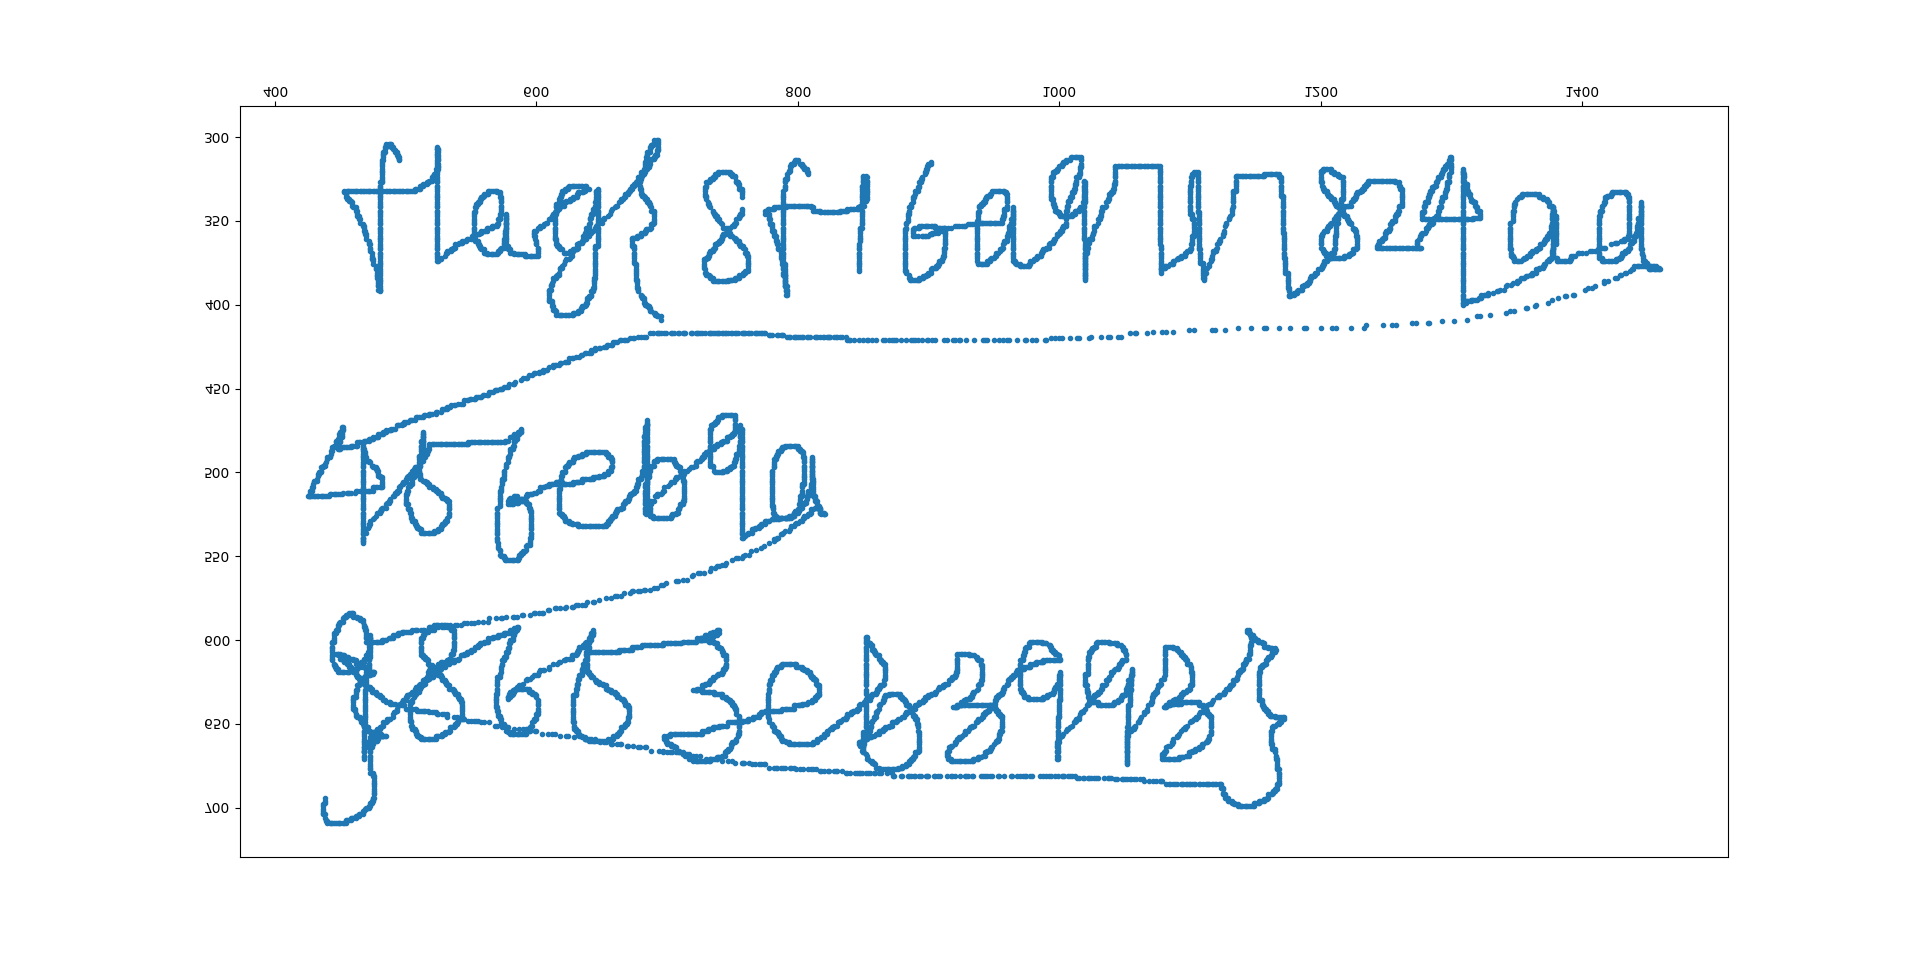 400 600 800 1000 1200 1400
300
350
400
450
500
550
600
650
700
flag{8f16a9717824aa
456eb9a
98653eb3993}